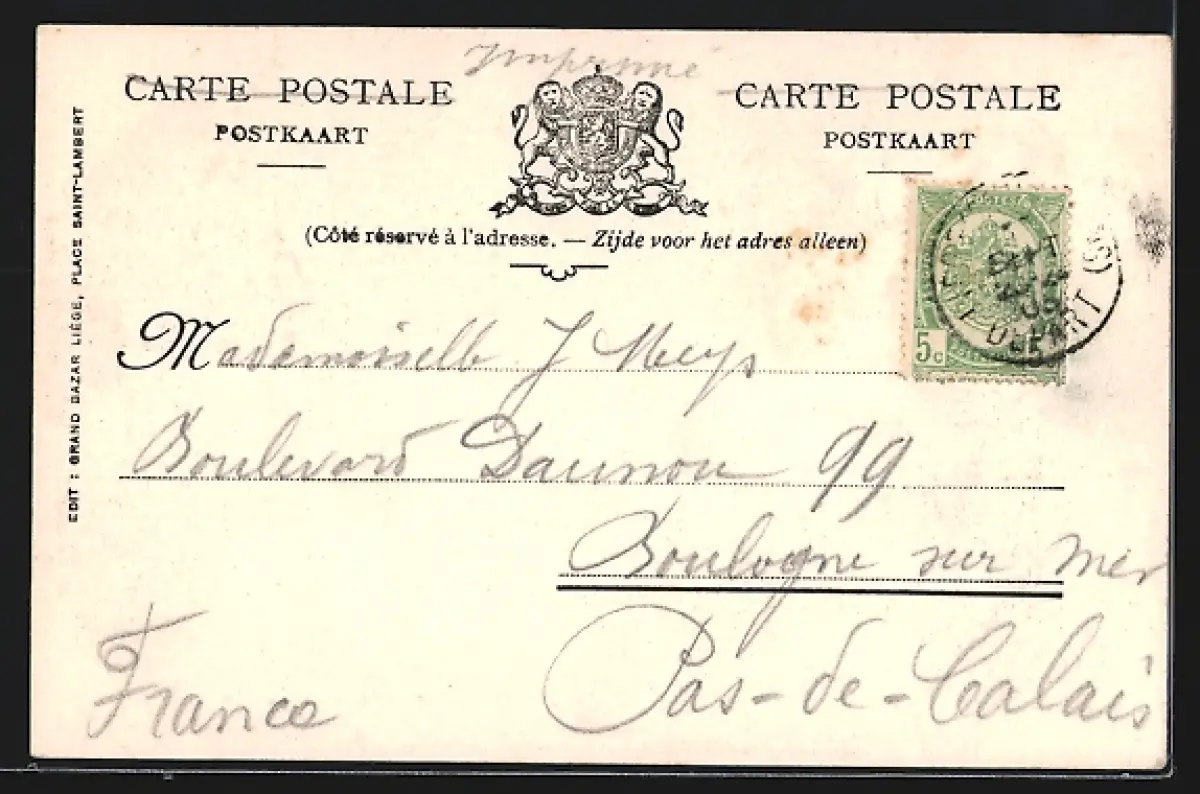 Imprimé
CARTE POSTALE
POSTKAART
CARTE POSTALE
POSTKAART
(Côté réservé à l'adresse. — Zijde voor het adres alleen)
5c
DEPART
Mademoiselle J Meys
Boulevard Daunou 99
Boulogne sur Mer
Pas-de-Calais
France
EDIT : GRAND BAZAR LIÉGE, PLACE SAINT-LAMBERT